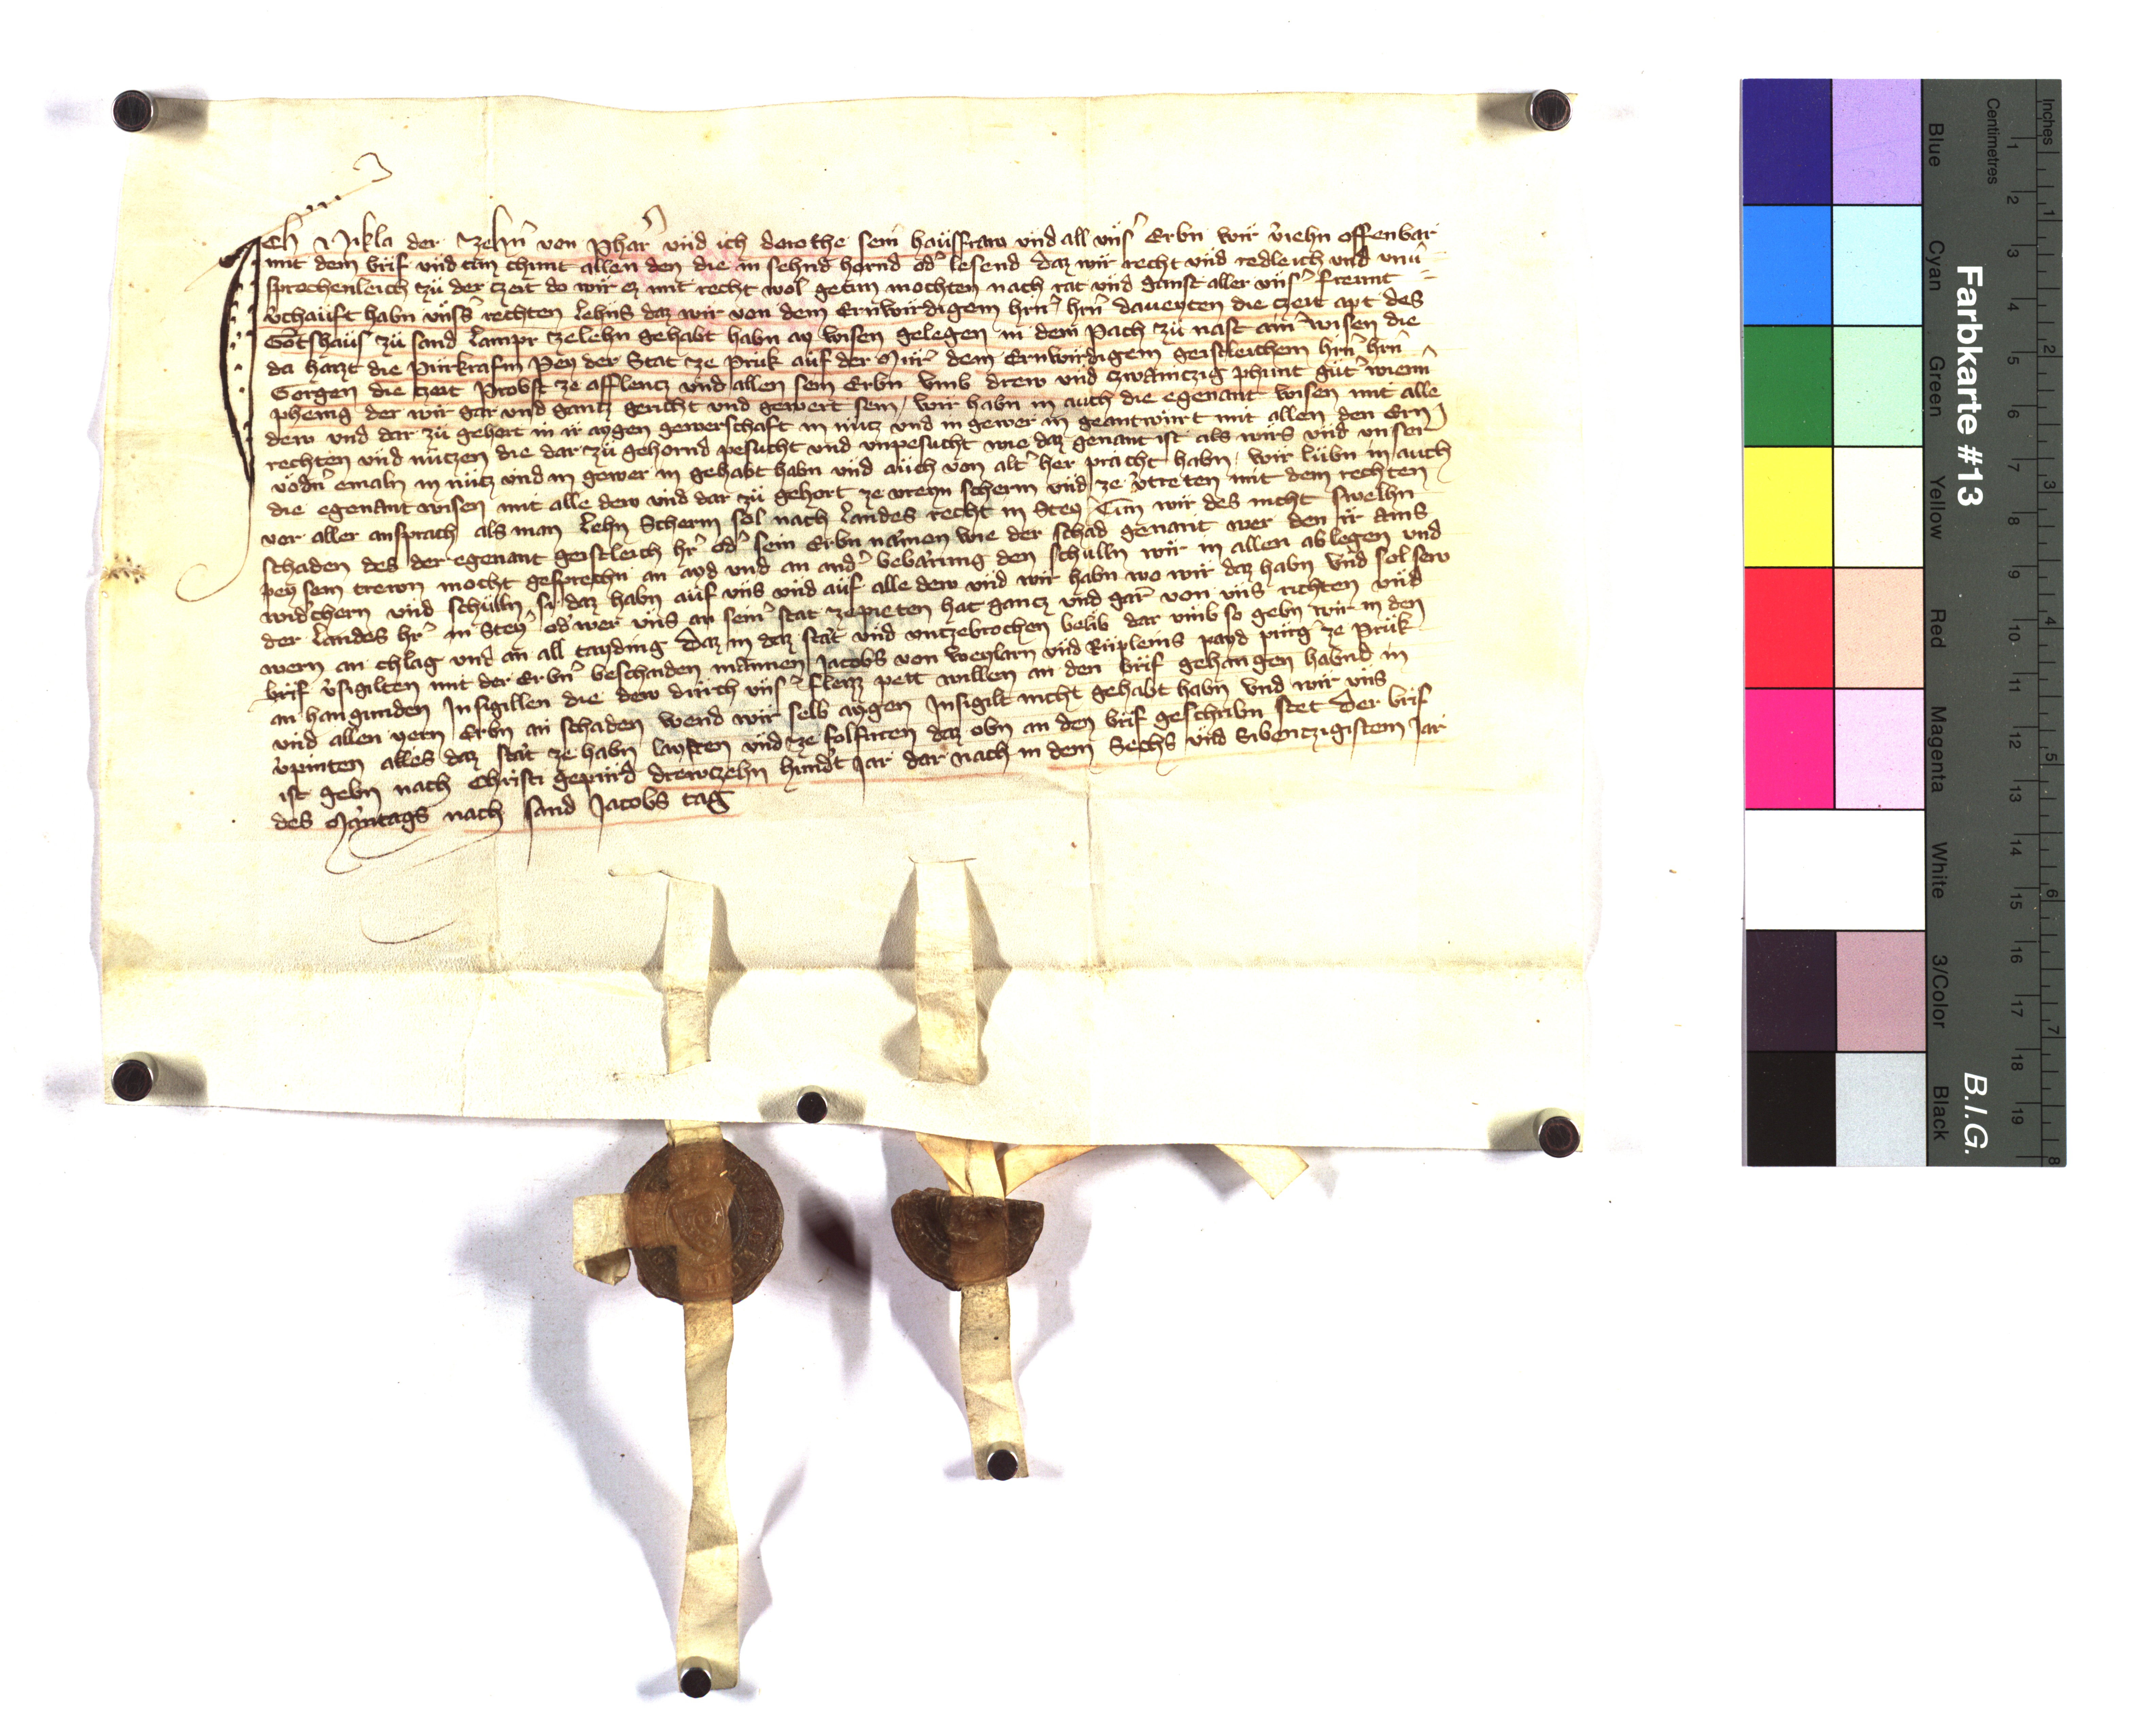 Ich Nikla der Zehn̄ von Phar̄ vnd ich dorothe sein hausfraw vnd all vns̾ Erbn wir v̾iehn offenbar
mit dem brif vnd tun chunt allen den die in sehnd hornd od̾ lesend daz wir recht vnd redleich vnd vnu̾
sprochenleich zu der czeit do wir ez mit recht wol getun mochten nach rat vnd gunst aller vns̾ freunt
v̾chauft habn vnss̾ rechten Lehns daz wir von dem Ernwirdigem hrn̄ hrn̄ dauenten die czeit apt des
Gotshaus zu sand Lampr zelehn gehabt habn ay wisen gelegen in dem Pach zu nast ain̾ wisen die
da hatzt die Purkrafin Pey der Stat ze Pruk auf der Mur̾ dem Ernwirdigem geistleichem hrn̄ hrn̄
Gorgen die czeit Probst ze afflencz vnd allen sein Erbn vmb drew vnd czwainczig phunt gut̾ wienn̾
phenig der wir gar vnd gantz gericht vnd gewert sein / wir habn in auch die egenant wisen mit alle
dew vnd dar zu gehort in ir aygen gewerschaft in nutz vnd in gewer in geantwurt mit allen den Ern
rechten vnd nutzen die dar zu gehornd pesucht vnd vnpesucht wie daz genant ist als wirs vnd vnser
vodn̾ emaln in nutz vnd in gewer in gehabt habn vnd auch von alt̾ her pracht habn / wir lubn in auch
die egenant wisen mit alle dew vnd dar zu gehort ze vreyn scherm vnd ze v̾treten mit dem rechten
vor aller ansprach als man Lehn Scherm sol nach Landes recht in Stey̾ Tun wir des nicht swelhn
schaden des der egenant geistleich hr̾ od̾ sein Erbn namen wie der schad genant wer den ir ains
pey sein trewn mocht gesprechn an ayd vnd an and̾ bebarung den schulln wir in allen ablegen vnd
wid̾chern vnd schulln si daz habn auf vns vnd auf alle dew vnd wir habn wo wir daz habn vnd sol sew
der Landes hr̾ in Stey̾ od̾ wer vns an sein̾ stat zepieten hat gancz vnd gar von vns richten vnd
wern an chlag vnd an all tayding Daz in daz stat vnd vntzebrochen belib dar vmb so gebn wir in den
brif v̾sigilten mit der Erbn̾ beschaiden mannen Jacobs von Weylarn vnd Rupleins payd purg̾ ze Pruk
an hangunden Insigillen die dew durch vns̾ fleizz pett willen an den brif gehangen habnd in
vnd allen yern Erbn an schaden wend wir selb aygen Insigilt nicht gehabt habn vnd wir vns
v̾pinten alles daz stat ze habn layften vnd ze folfuren daz obn an den brif geschribn stet Der brif
ist gebn nach Christi gepurd drewczehn hund̾t Jar dar nach in dem Sechs vnd Sibentzigistem Jar
des Mantags nach sand Jacobs tag
Farbkarte #13
B.I.G.
Inches
Centimetres
1 2 3 4 5 6 7 8
1 2 3 4 5 6 7 8 9 10 11 12 13 14 15 16 17 18 19
Blue
Cyan
Green
Yellow
Red
Magenta
White
3/Color
Black